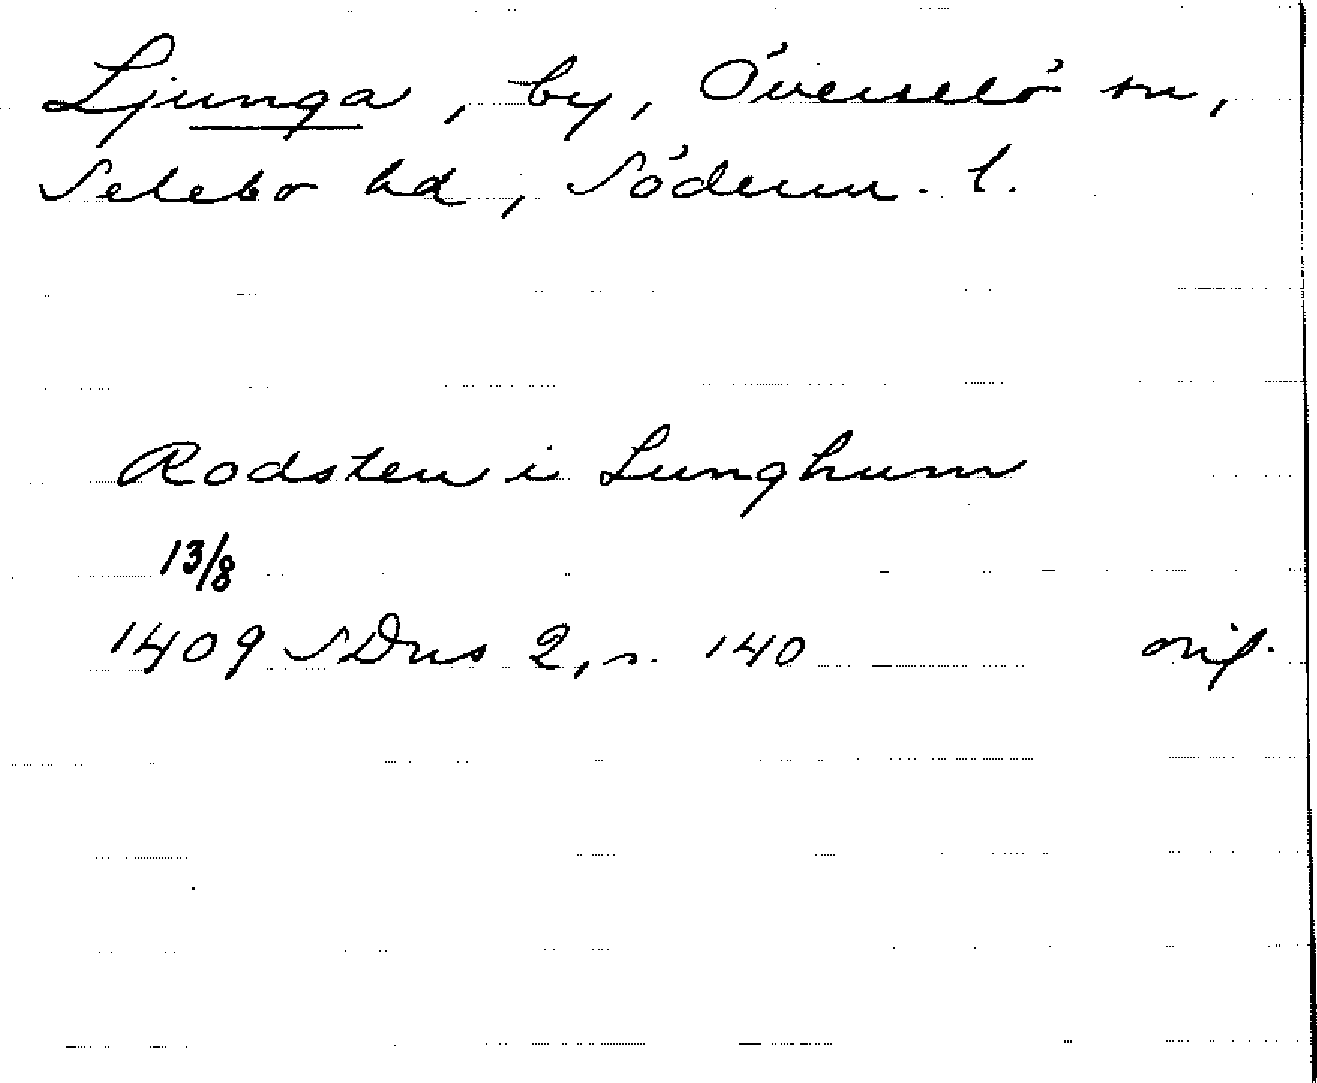 Ljunga, by, Överselö sn,
Selebo hd, Söderm. l.
Rodsten i Lunghum
13/8
1409 SDns 2, s. 140 orig.